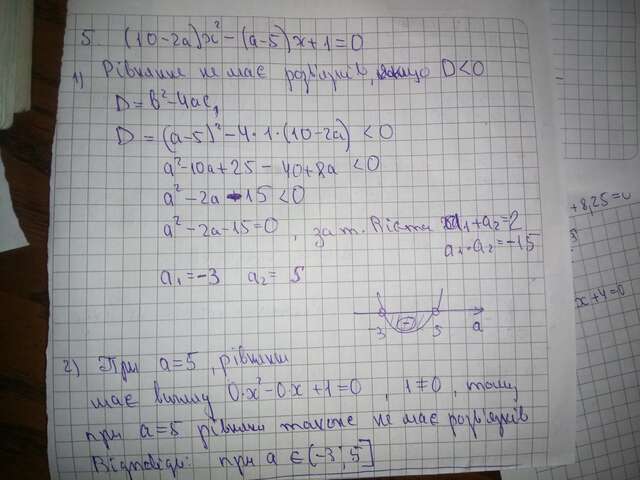 5. (10-2a)x²-(a-5)x+1=0
1) Рівняння не має розв'язків, якщо D<0
D=b²-4ac,
D=(a-5)²-4·1·(10-2a)<0
a²-10a+25-40+8a<0
a²-2a-15<0
a²-2a-15=0, за т. Вієта a₁+a₂=2
a₁·a₂=-15
a₁=-3 a₂=5
-3 5 a
2) При a=5, рівняння
має вигляд 0·x²-0·x+1=0, 1≠0, тому
при a=5 рівняння також не має розв'язків
Відповідь: при a∈(-3;5]
+8,25=0
x+4=0